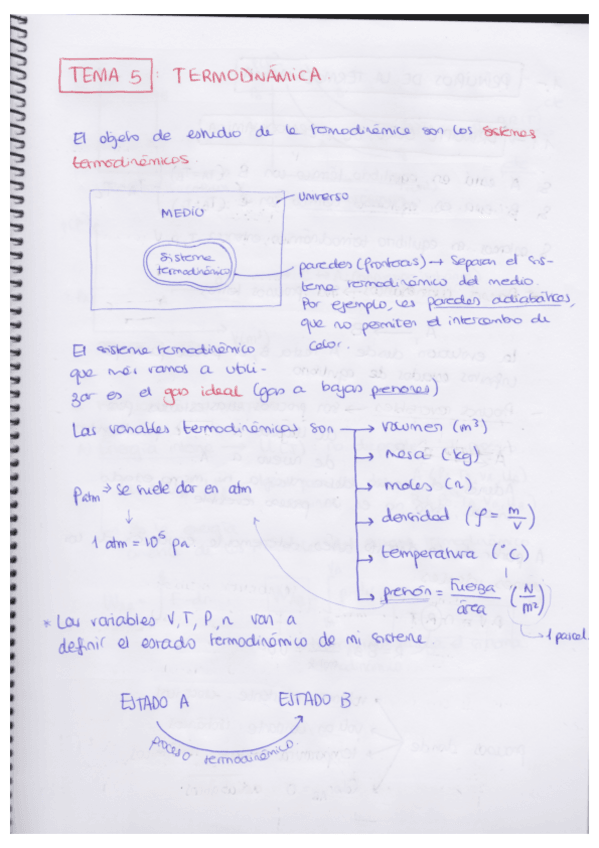 TEMA 5 : TERMODINÁMICA.
El objeto de estudio de la termodinámica son los sistemas
termodinámicos.
universo
MEDIO
Sistema
termodinámico
paredes (fronteras) → separan el sis-
tema termodinámico del medio.
Por ejemplo, las paredes adiabáticas,
que no permiten el intercambio de
calor.
El sistema termodinámico
que más vamos a utili-
zar es el gas ideal (gas a bajas presiones)
Las variables termodinámicas son → volumen (m³)
→ masa (kg)
→ moles (n)
→ densidad (ρ = m/V)
→ temperatura (°C)
→ presión = Fuerza/área (N/m²)
→ 1 pascal
Patm → se suele dar en atm
↓
1 atm = 10⁵ pa
* Las variables V, T, P, n van a
definir el estado termodinámico de mi sistema
ESTADO A ESTADO B
proceso termodinámico